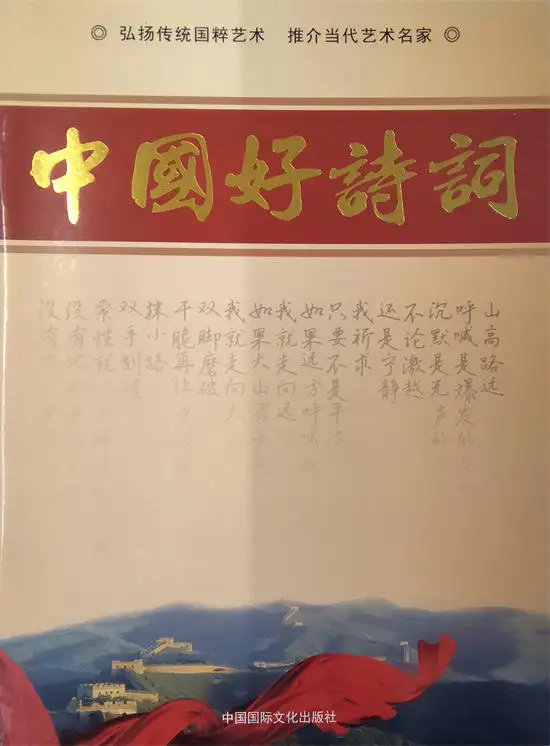 ◎ 弘扬传统国粹艺术 推介当代艺术名家 ◎
中國好詩詞
山高路远
呼喊是爆发的
沉默是无声的
不论激越
还是宁静
我祈求
只要不是平
如果远方呼喊
我就走向远
如果大山召
我就走向大
双脚磨破
干脆再让
抹小路
双手划
索性就
没有
没有
中国国际文化出版社